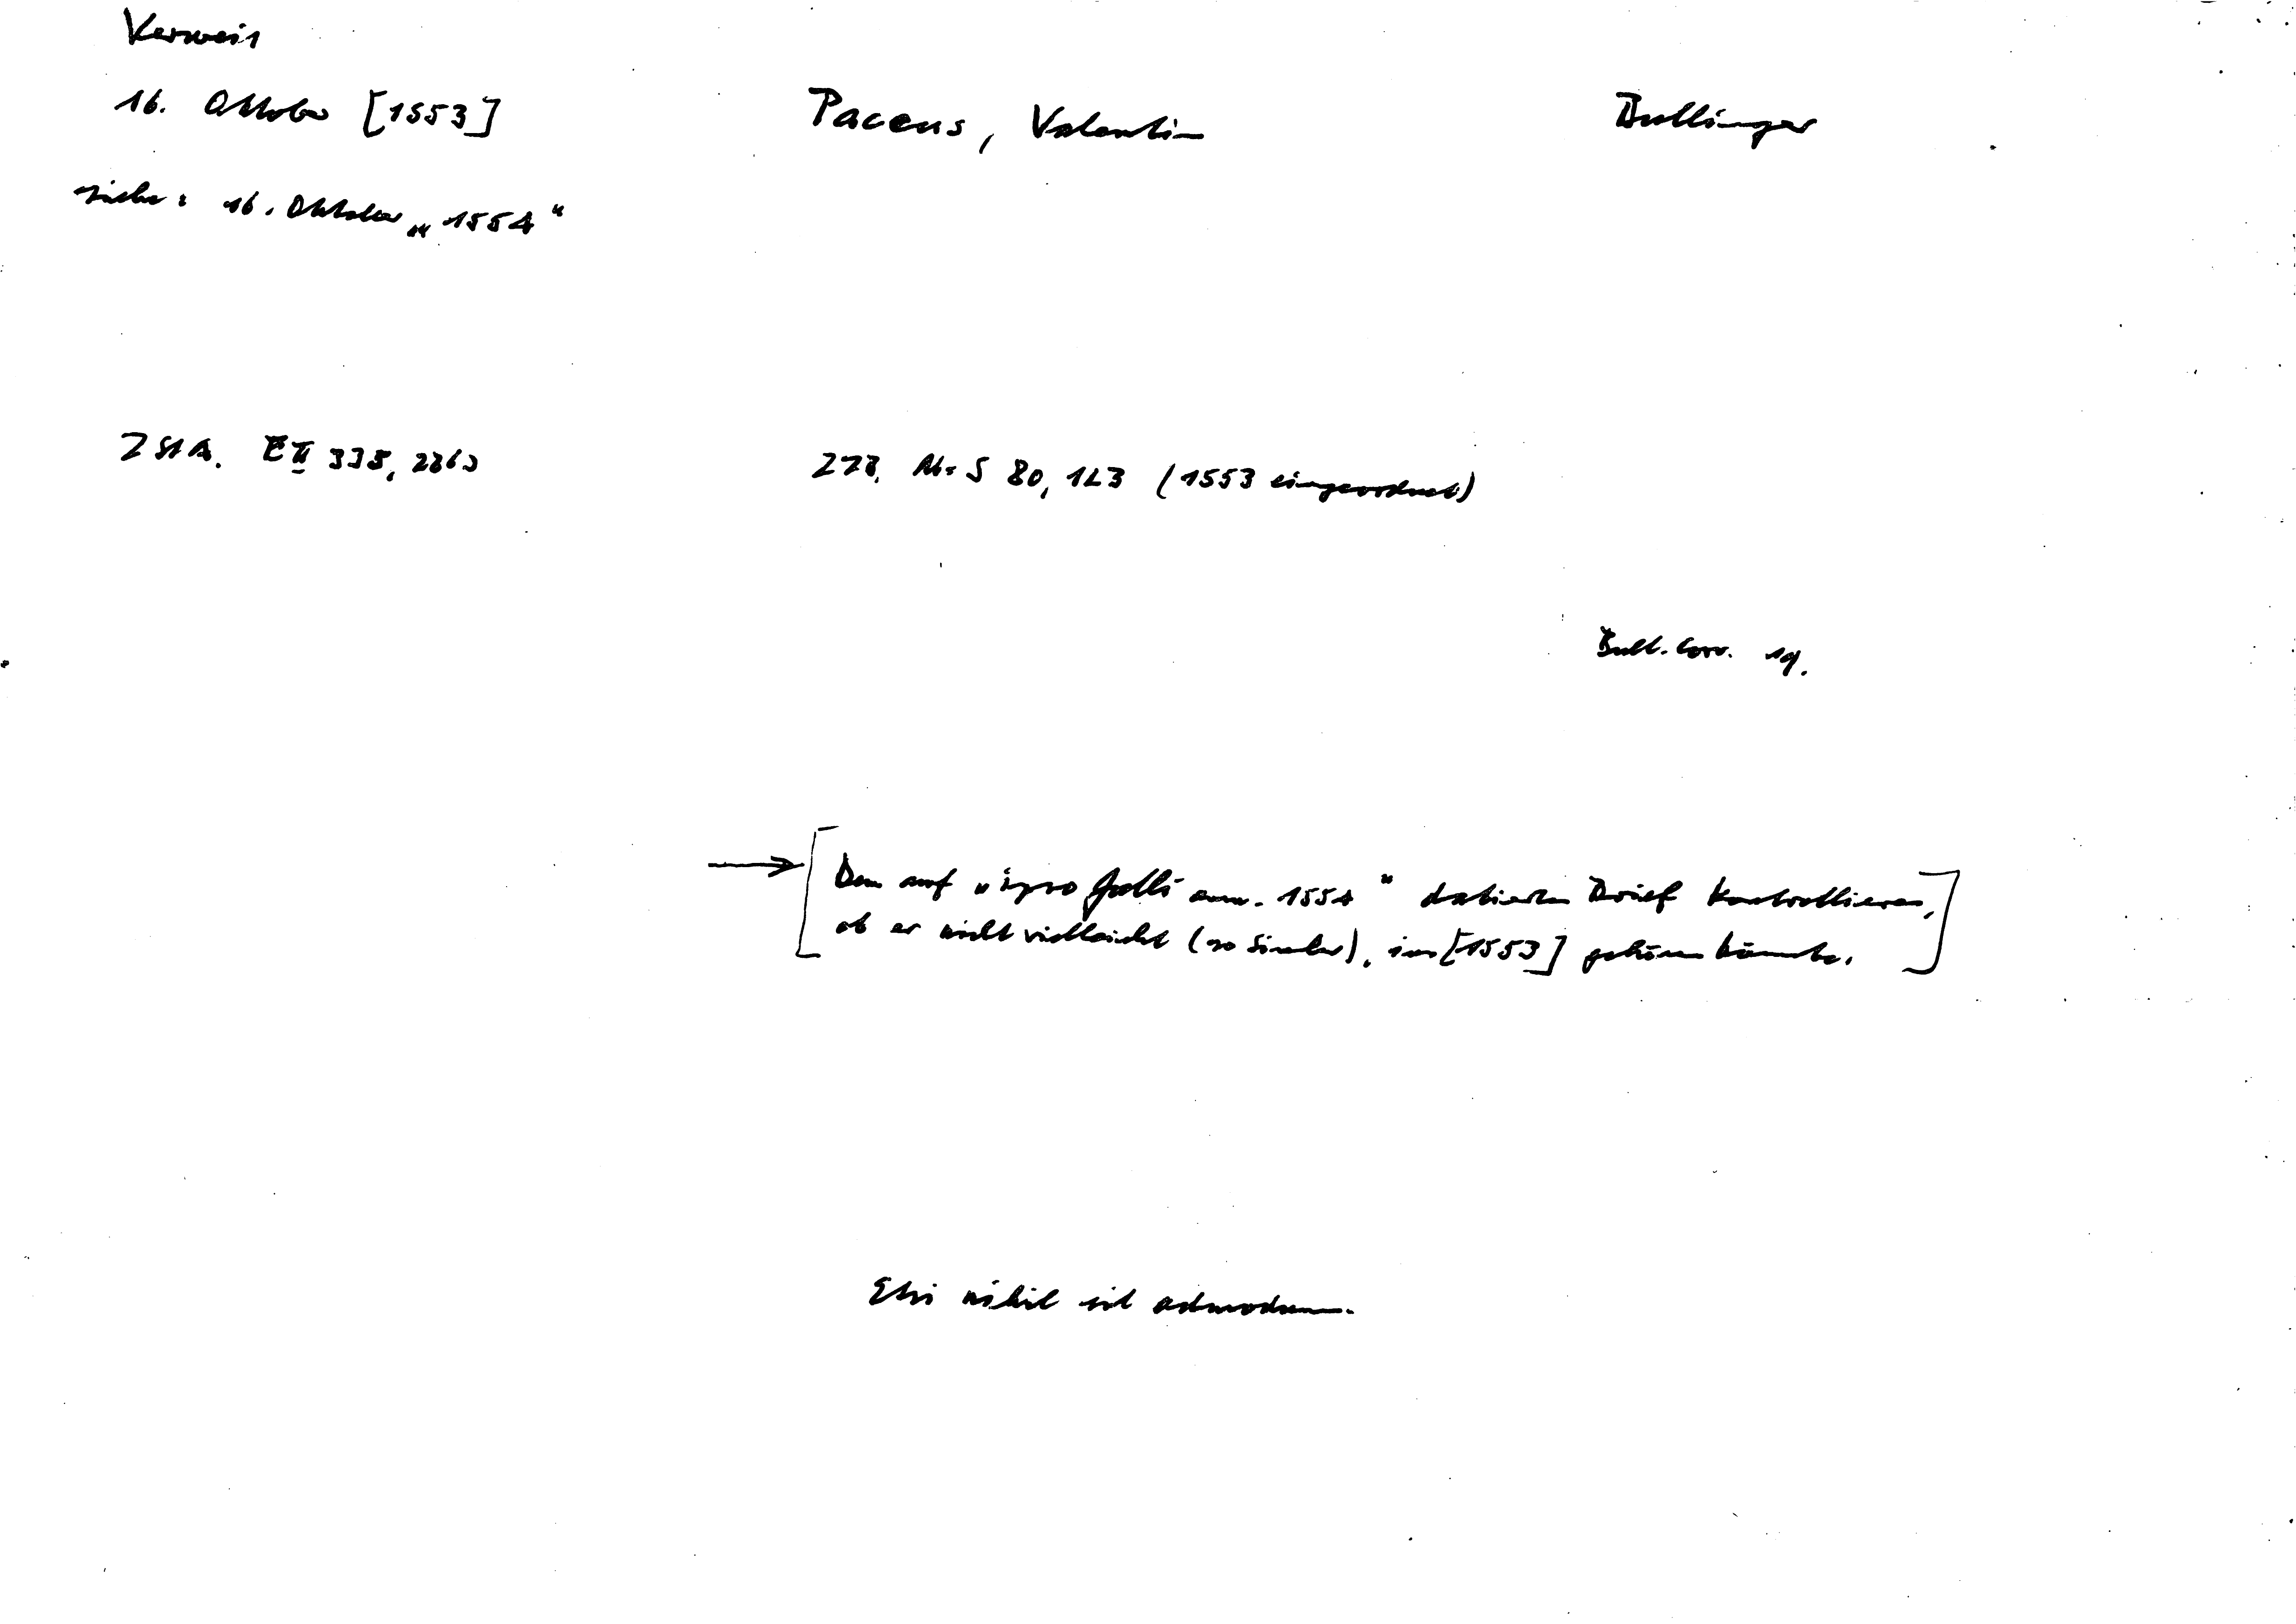 Verweis
16. Oktober [1553]
Paceus, Valentin
Bullinger
siehe: 16. Oktober „1554“
ZStA. E II 335, 2260
ZZB. Ms S 80, 123 (1553 eingeordnet)
Bull. Corr. 19.
→ [Den auf „ipso galli ann. 1554“ datierten Brief kontrollieren,
ob er nicht vielleicht (so Simler), ins [1553] gehören könnte.]
Etsi nihil sit admodum.